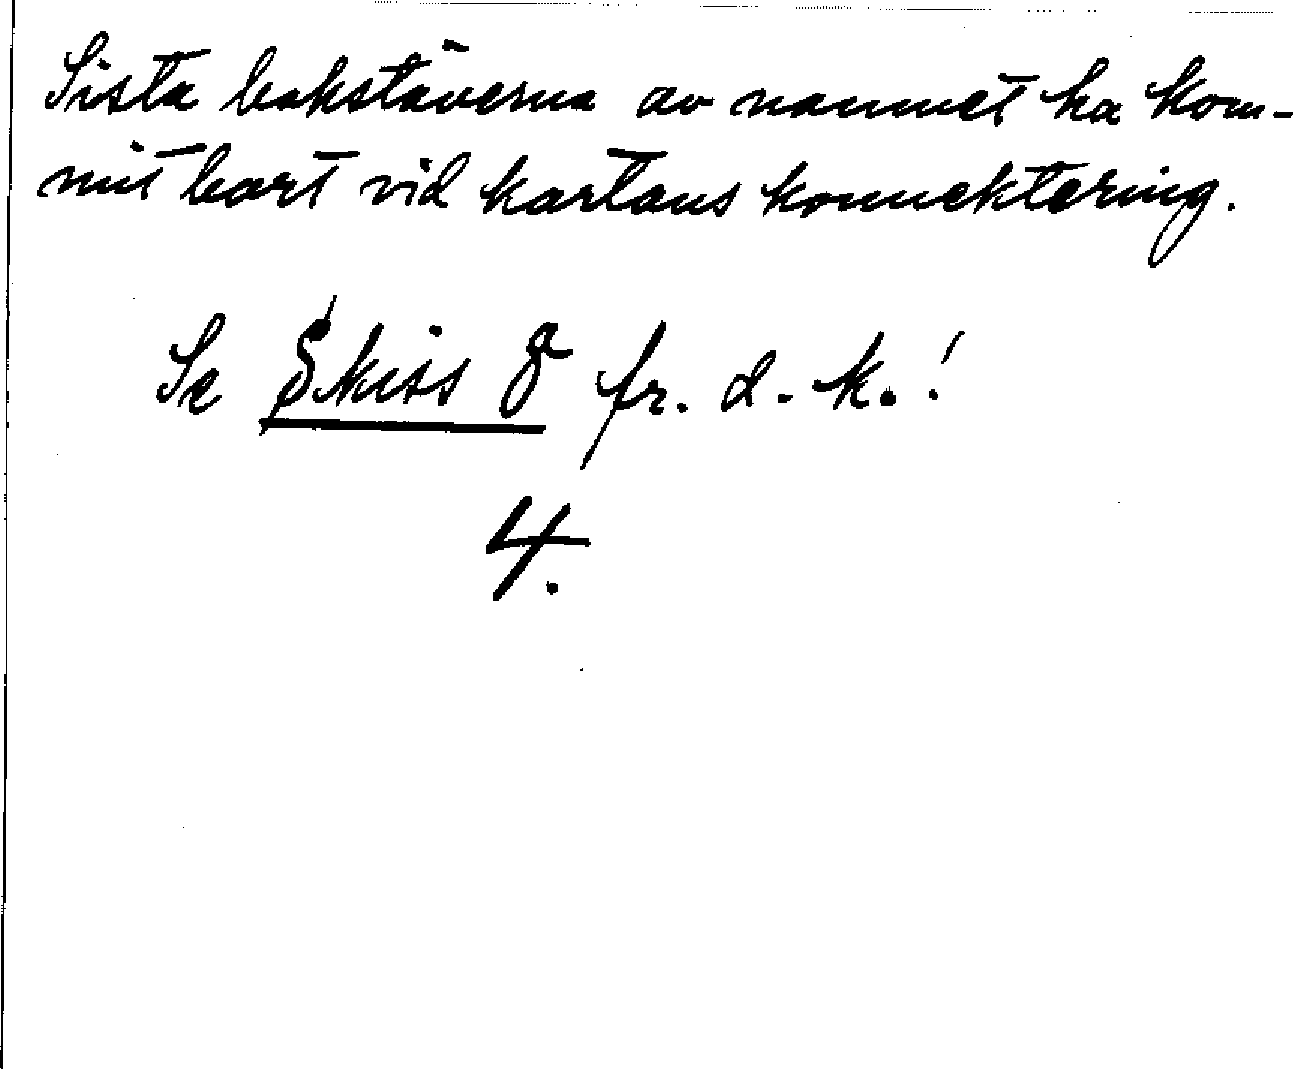 Sista bokstäverna av namnet ha kom-
mit bort vid kartans konnektering.
Se Skiss 8 fr. d. k.!
4.